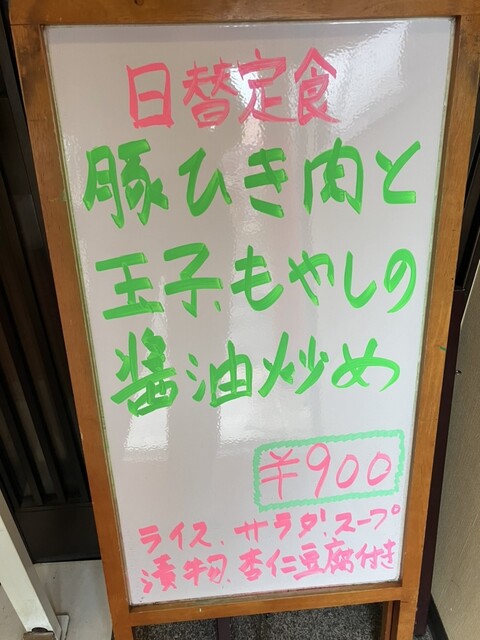 日替定食
豚ひき肉と
玉子、もやしの
醤油炒め
¥900
ライス、サラダ、スープ
漬物、杏仁豆腐付き